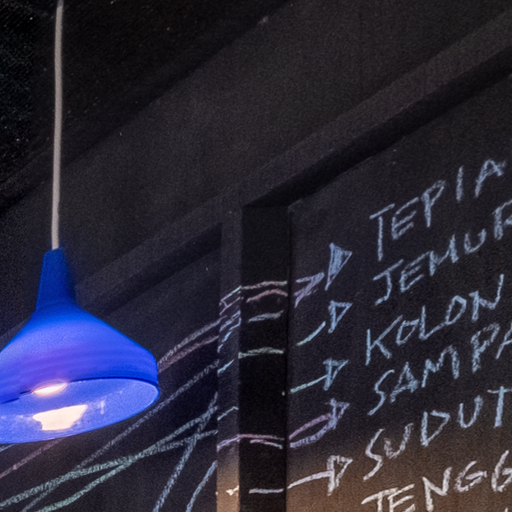 TEPIA
JEMUR
KOLON
SAMPA
SUDUT
TENGG